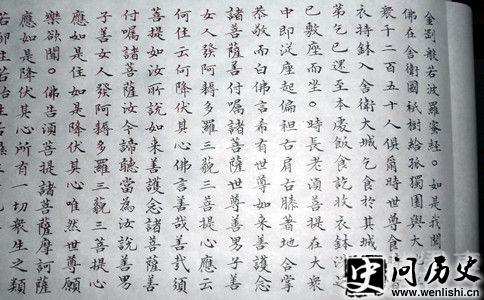 金剛般若波羅蜜經。如是我聞
佛在舍衛國祇樹給孤獨園與大
眾千二百五十人俱爾時世尊食
衣持鉢入舍衛大城乞食於其城
第乞已還至本處飯食訖收衣鉢洗
已敷座而坐。時長老須菩提在大衆
中即從座起偏袒右肩右膝著地合掌
恭敬而白佛言希有世尊如來善護念
諸菩薩善付囑諸菩薩世尊善男子善
女人發阿耨多羅三藐三菩提心應云
何住云何降伏其心佛言善哉善哉須
菩提如汝所說如來善護念諸菩薩善
付囑諸菩薩汝今諦聽當為汝說善男
子善女人發阿耨多羅三藐三菩提心
應如是住如是降伏其心唯然世尊願
樂欲聞。佛告須菩提諸菩薩摩訶薩
應如是降伏其心所有一切衆生之類
若卵生若胎生若
史问历史
www.wenlishi.cn